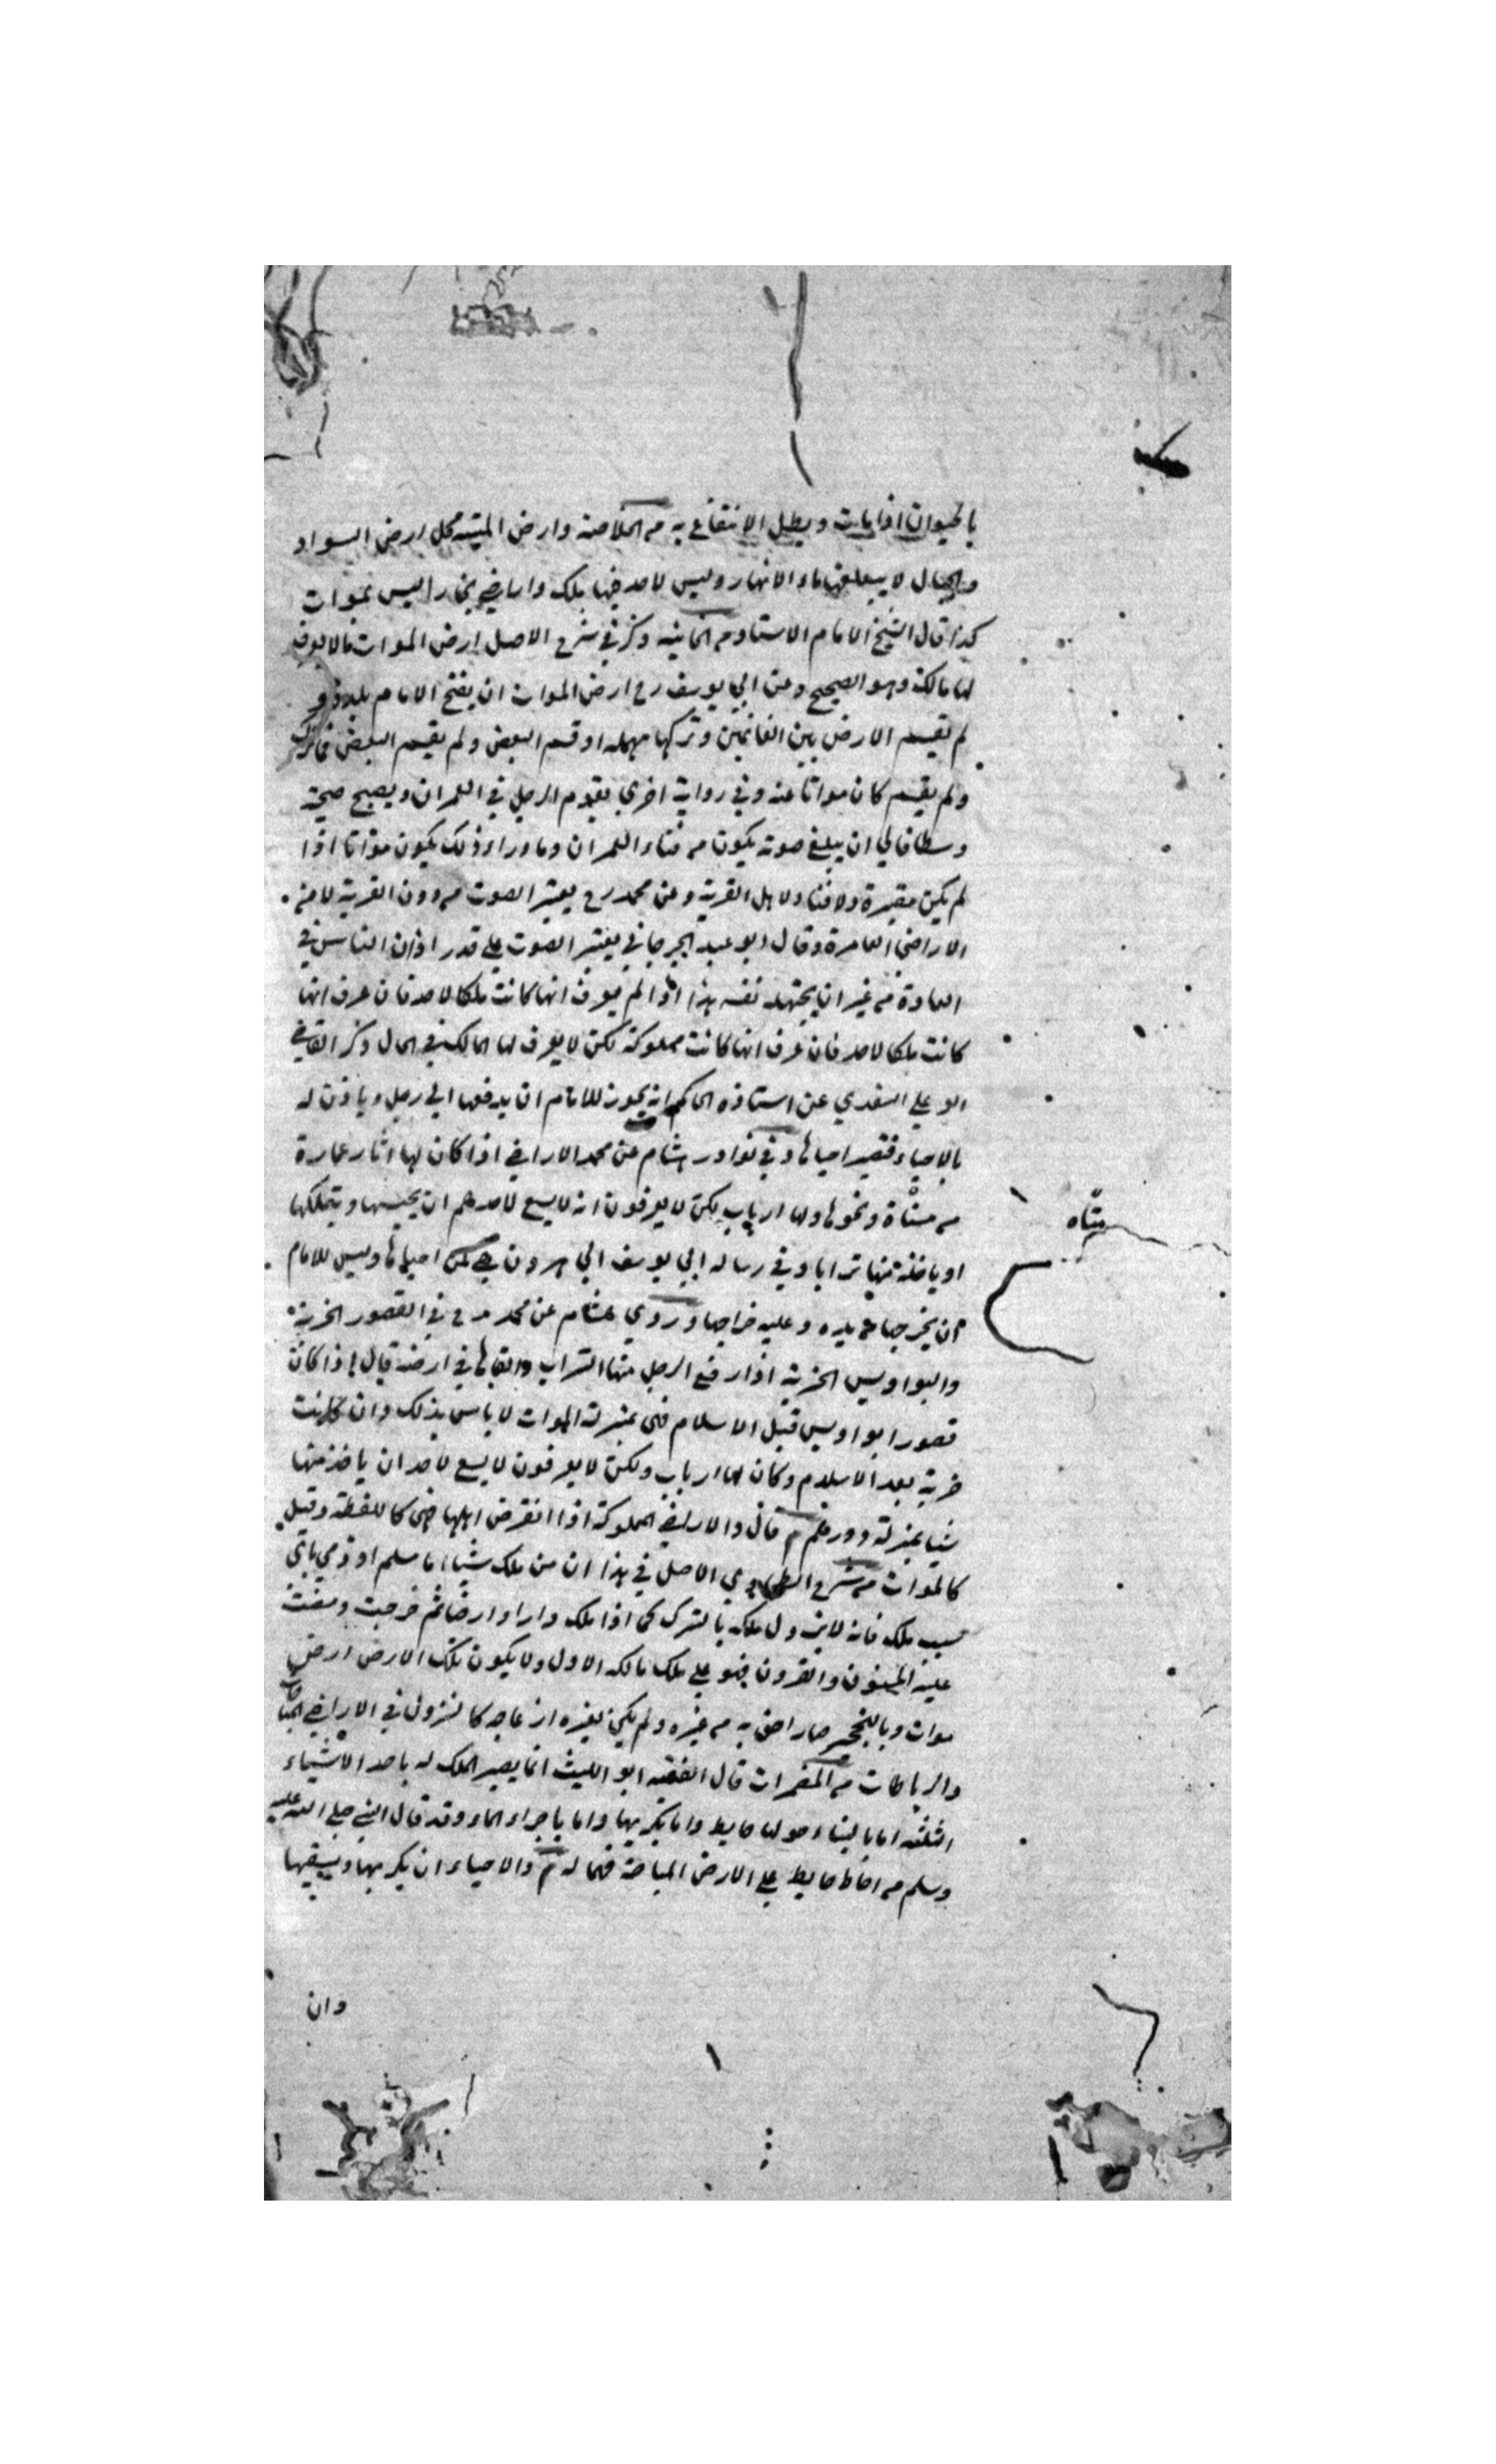 بالحيوان اذا مات وبطل الانتفاع به من الخلاصة وارض الميتة محل ارض السواد
والجبال لا يبلغها ماء الانهار وليس لاحد فيها ملك واراضي بخارا ليس بموات
كذا قال الشيخ الامام الاستاد من الخانية وذكر في شرح الاصل ارض الموات مالا يعرف
لها مالك وهو الصحيح وعن ابي يوسف رح ارض الموات ان يفتح الامام بلدة و
لم يقسم الارض بين الغانمين وتركها مهملة او قسم البعض ولم يقسم البعض فما ترك
ولم يقسم كان مواتا عنه وفي رواية اخرى يقوم الرجل في العمران ويصيح صيحة
وسطا فالى ان يبلغ صوته يكون من فناء العمران وما وراء ذلك يكون مواتا اذا
لم يكن مقبرة ولا فناء لاهل القرية وعن محمد رح يعتبر الصوت من دون القرية لا من
الاراضي العامرة وقال ابو عبد الجرجاني يعتبر الصوت على قدر اذان الناس في
العادة من غير ان يجتهد نفسه هذا اذا لم يعرف انها كانت ملكا لاحد فان عرف انها
كانت ملكا لاحد فان عرف انها كانت مملوكة لكن لا يعرف لها المالك في الحال ذكر القاضي
ابو علي السغدي عن استاذه الحاكم انه يجوز للامام ان يدفعها الى رجل وياذن له
بالاحياء فتصير احياها وفي نوادر هشام عن محمد الاراضي اذا كان لها اثار عمارة
من مسناة ونحوها ولها ارباب لكن لا يعرفون انه لا يسع لاحدهم ان يحييها ويتملكها
او ياخذ منها ترابا وفي رسالة ابي يوسف الى هرون هي لمن احياها وليس للامام
ان يخرجها من يده وعليه خراجها وروى هشام عن محمد رح في القصور الخربة
والنواويس الخربة اذا رفع الرجل منها التراب والقاها في ارضه قال اذا كان
قصور او نواويس قبل الاسلام فهي بمنزلة الموات لا باس بذلك وان كانت
خربة بعد الاسلام وكان لها ارباب ولكن لا يعرفون لا يسع لاحد ان ياخذ منها
شيا بمنزلة دورهم م قال والاراضي المملوكة اذا انقرض اهلها فهي كاللقطة وقيل
كالموات من شرح الطحاوي الاصل في هذا ان من ملك شيا اما مسلم او ذمي باي
سبب ملك فانه لا يزول ملكه بالترك كما اذا ملك دارا وارضا ثم خربت ومضت
عليه السنون والقرون فهو على ملك مالكه الاول ولا يكون تلك الارض ارض
موات وبالتحجر صار احق به من غيره ولم يكن لغيره ازعاجه كالنزول في الاراضي المباحات
والرباطات من المضمرات قال الفقيه ابو الليث انما يصير الملك له باحد الاشياء
الثلثة اما بالبناء حولها حايط واما بكربها واما باجراء الماء وقد قال النبي صلى الله عليه
وسلم من احاط حايط على الارض المباحة فهما له م والاحياء ان يكربها ويسقيها
مسناه
وان